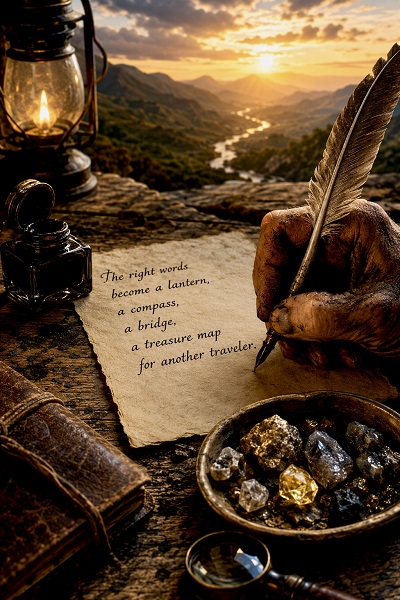 The right words
become a lantern,
a compass,
a bridge,
a treasure map
for another traveler.